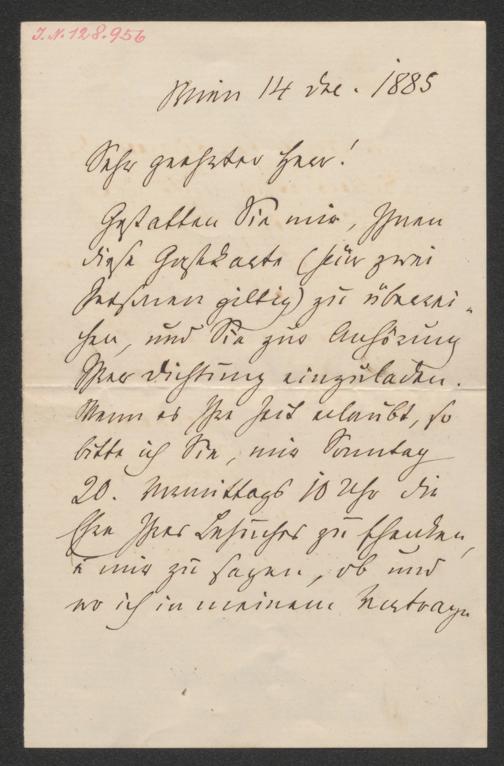 I.N. 128.956
Wien 14 Dec. 1885
Sehr geehrter Herr!
Gestatten Sie mir, Ihnen
diese Gastkarte (für zwei
Personen giltig) zu überrei-
chen, und Sie zur Anhörung
Ihrer Dichtung einzuladen.
Wenn es Ihre Zeit erlaubt, so
bitte ich Sie, mir Sonntag
20. Vormittags 10 Uhr die
Ehre Ihres Besuches zu schenken,
u mir zu sagen, ob und
wo ich in meinem Vortrage